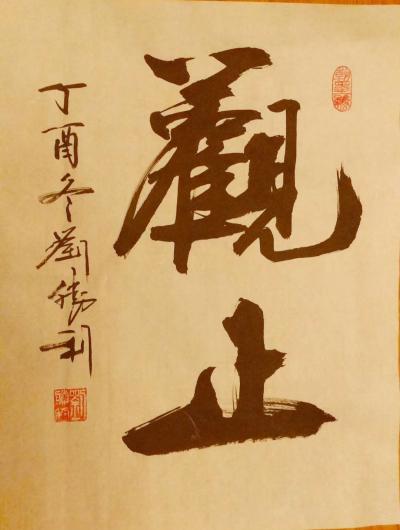 觀止
丁酉冬劉勝利